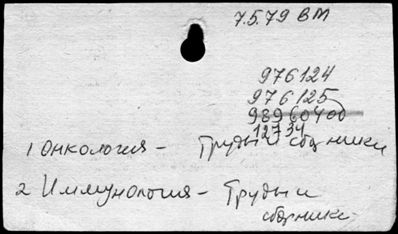 7.5.79 ВМ
976124
976125
98960400
12734
1 Онкология – Труды и сборники
2 Иммунология – Труды и
сборники